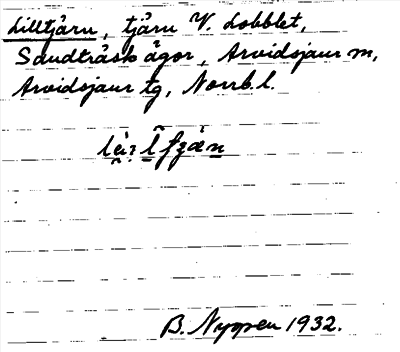 Lilltjärn, tjärn V. Lobblet,
Sandträsk ägor, Arvidsjaur sn,
Arvidsjaur tg, Norrb. l.
B. Nyppen 1932.